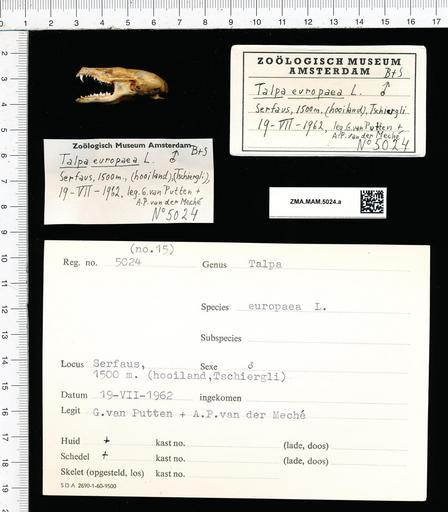 ZOÖLOGISCH MUSEUM
AMSTERDAM B+S
Talpa europaea L. ♂
Serfaus, 1500m. (hooiland), Tschiergli
19-VII-1962, leg. G. van Putten +
A.P. van der Meché
N° 5024
Zoölogisch Museum Amsterdam
B+S
Talpa europaea L. ♂
Serfaus, 1500m., (hooiland), Tschiergli),
19-VII-1962, leg. G. van Putten +
A.P. van der Meché
N° 5024
ZMA.MAM.5024.a
(no.15)
Reg. no. 5024 Genus Talpa
Species europaea L.
Subspecies
Locus Serfaus, Sexe ♂
1500 m. (hooiland,Tschiergli)
Datum 19-VII-1962 ingekomen
Legit G.van Putten + A.P.van der Meché
Huid + kast no. (lade, doos)
Schedel + kast no. (lade, doos)
Skelet (opgesteld, los) kast no.
S D A 2690-1-60-9500
0 1 2 3 4 5 6 7 8 9 10 11 12 13 14 15 16 17
2
3
4
5
6
7
8
9
10
11
12
13
14
15
16
17
18
19